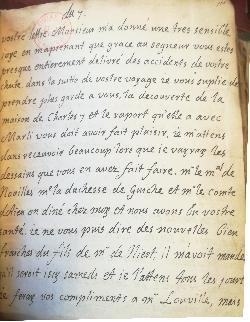 du 7
vostre lettre Monsieur m'a donné une tres sensible
joye en m'aprenant que grace au seigneur vous estes
presque entierement delivré des accidens de vostre
chute. dans la suitte de vostre voyage ie vous suplie de
prendre plus garde a vous, la decouverte de la
maison de Charles 7 et le raport qu'elle a avec
Marli vous doit avoir fait plaisir, ie m'attens
d'en recevoir beaucoup lors que ie verray les
desseins que vous en avez fait faire. mr le mal de
Noailles me la duchesse de Guiche et mr le comte
d'Aien on diné chez moy et nous avons bu vostre
santé. ie ne vous puis dire des nouvelles bien
fraiches du fils de mr de Nicot, il m'avoit mandé
qu'il seroit icy samedi et ie l'attens tous les jours
ie feray vos compliments a mr Louville, mais